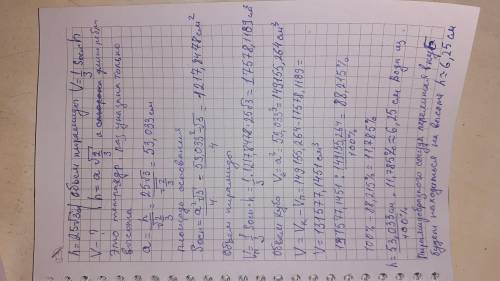 h=25√3см Объём пирамиды V=1/3 Sосн h
V-? h=a√2/3 а длина ребра
Это тетраэдр раз указана только
высота
a=h/√2/3=25√3/√2/3=53,033см
площадь основания
Sосн=a²√3/4=53,033²√3/4=1217,8478см²
Объём пирамиды
Vп=1/3 Sосн·h=1/3·1217,8478·25√3=17578,1189см³
Объём куба Vк=a³=53,033³=149155,264см³
V=Vк-Vп=149155,264-17578,1189=
V=131577,1451см³
131577,1451÷149155,264·100%=88,215%
100%-88,215%=11,785%
h=53,033см·11,785%÷100%=6,25см Вода из
пирамидального сосуда перелитая в куб
будет находиться на высоте h=6,25см